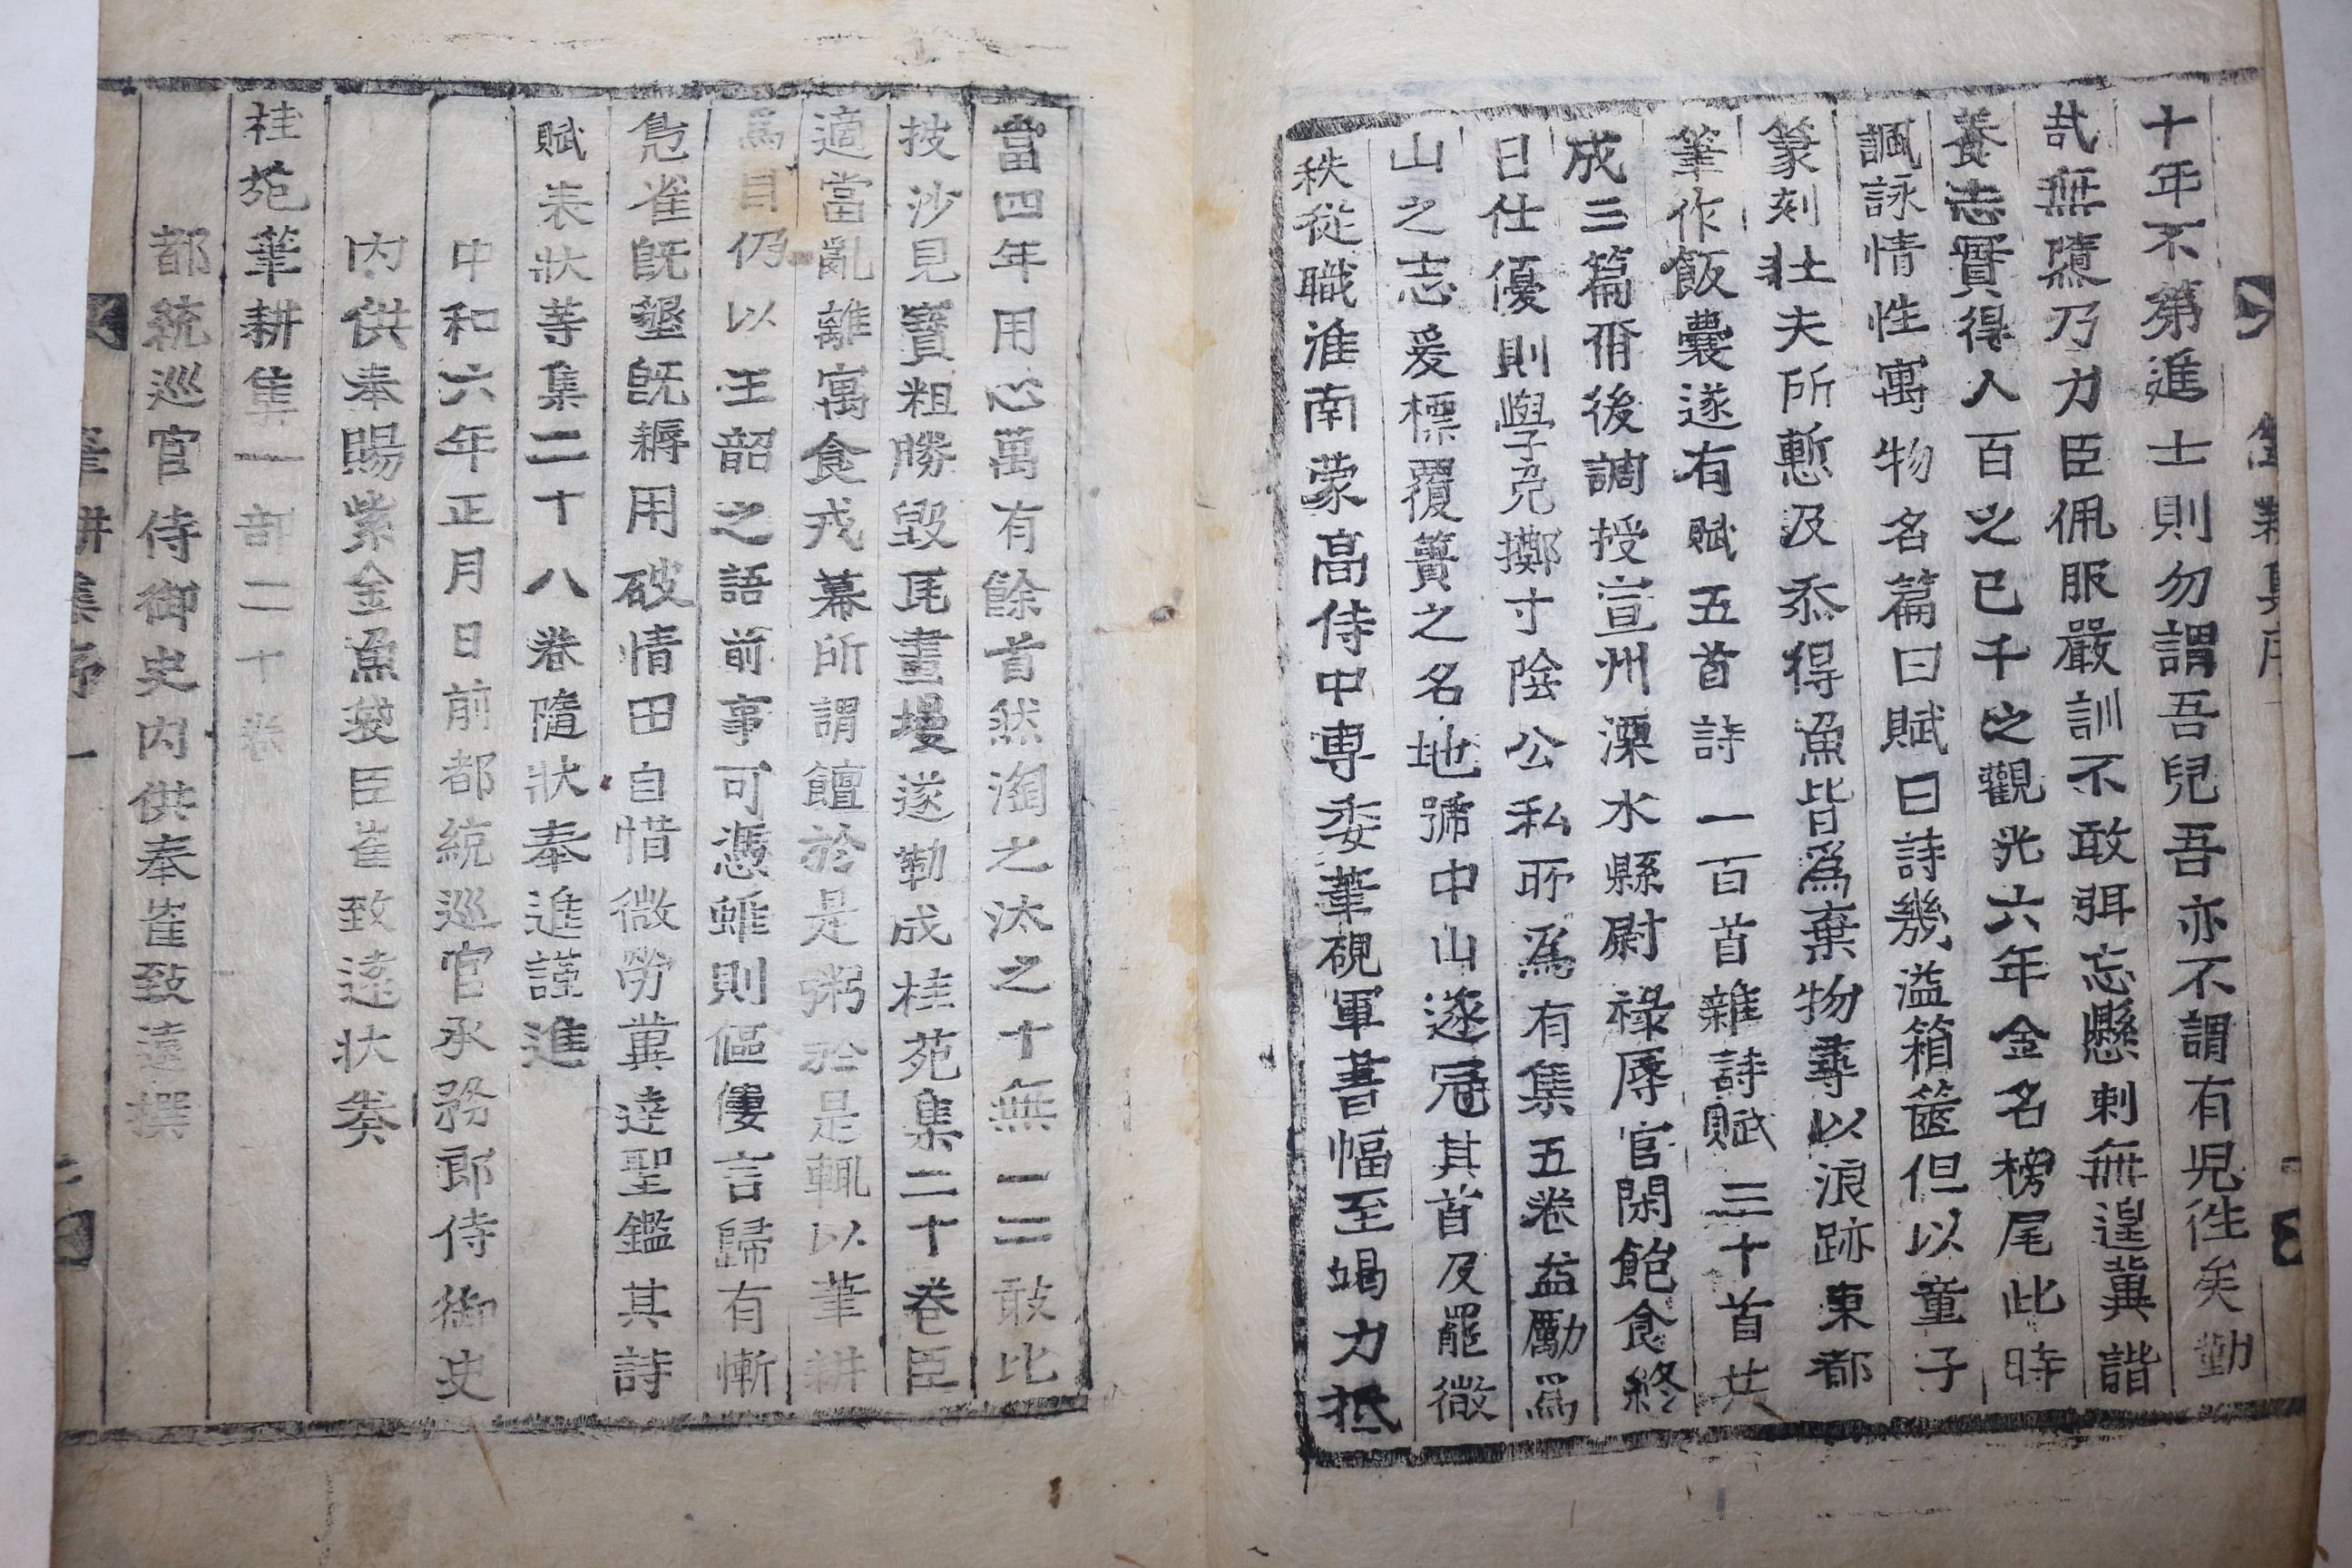 十年不第進士則勿謂吾兒吾亦不謂有兒徃矣勤
哉無隳乃力臣佩服嚴訓不敢弭忘懸刺無遑兾諧
養志實得人百之已千之觀光六年金名榜尾此時
諷詠情性寓物名篇曰賦曰詩幾溢箱篋但以童子
篆刻壯夫所慙及忝得魚皆爲棄物尋以浪跡東都
筆作飯囊遂有賦五首詩一百首雜詩賦三十首共
成三篇爾後調授宣州溧水縣尉祿厚官閑飽食終
日仕優則學免擲寸陰公私所爲有集五卷益勵爲
山之志爰標覆簣之名地號中山遂冠其首及罷微
秩從職淮南蒙高侍中専委筆硯軍書幅至竭力抵
當四年用心萬有餘首然淘之汰之十無一二敢比
披沙見寶粗勝毁瓦畫墁遂勒成桂苑集二十卷臣
適當亂離寓食戎幕所謂饘於是粥於是輒以筆耕
爲目仍以王韶之語前事可憑雖則傴僂言歸有慚
鳧雀旣墾旣耨用破情田自惜微勞兾達聖鑑其詩
賦表狀等集二十八卷隨狀奉進謹進
中和六年正月日前都統巡官承務郎侍御史
內供奉賜紫金魚袋臣崔致遠狀奏
桂苑筆耕集一部二十卷
都統巡官侍御史内供奉崔致遠撰